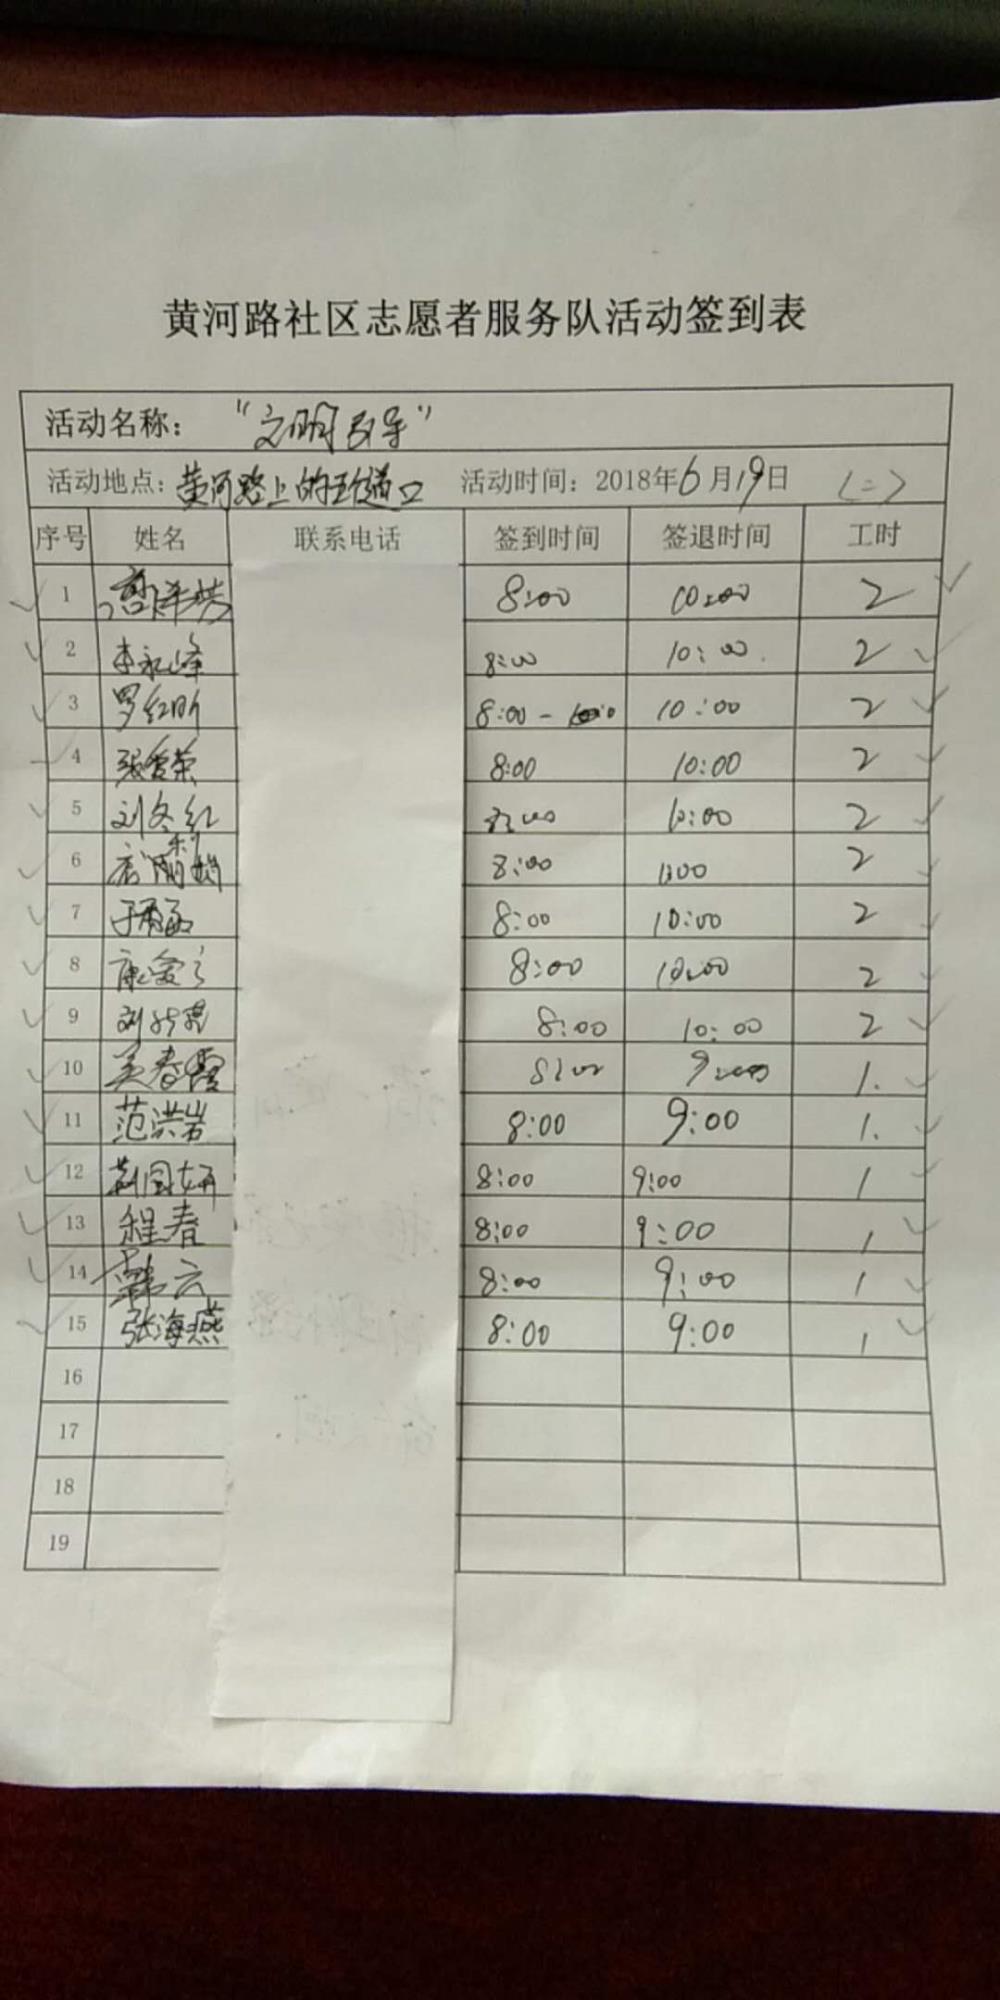 黄河路社区志愿者服务队活动签到表
活动名称： "文明引导"
活动地点：黄河路上的五道口 活动时间：2018年6月19日 (二)
序号 姓名 联系电话 签到时间 签退时间 工时
1 8:00 10:00 2
2 李永峰 8:00 10:00 2
3 罗红昕 8:00 - 10:00 2
4 张爱荣 8:00 10:00 2
5 刘冬红 8:00 10:00 2
6 8:00 10:00 2
7 8:00 10:00 2
8 8:00 10:00 2
9 8:00 10:00 2
10 吴春霞 8:00 9:00 1.
11 范洪岩 8:00 9:00 1.
12 8:00 9:00 1
13 程春 8:00 9:00 1
14 韩云 8:00 9:00 1
15 张海燕 8:00 9:00 1
16
17
18
19